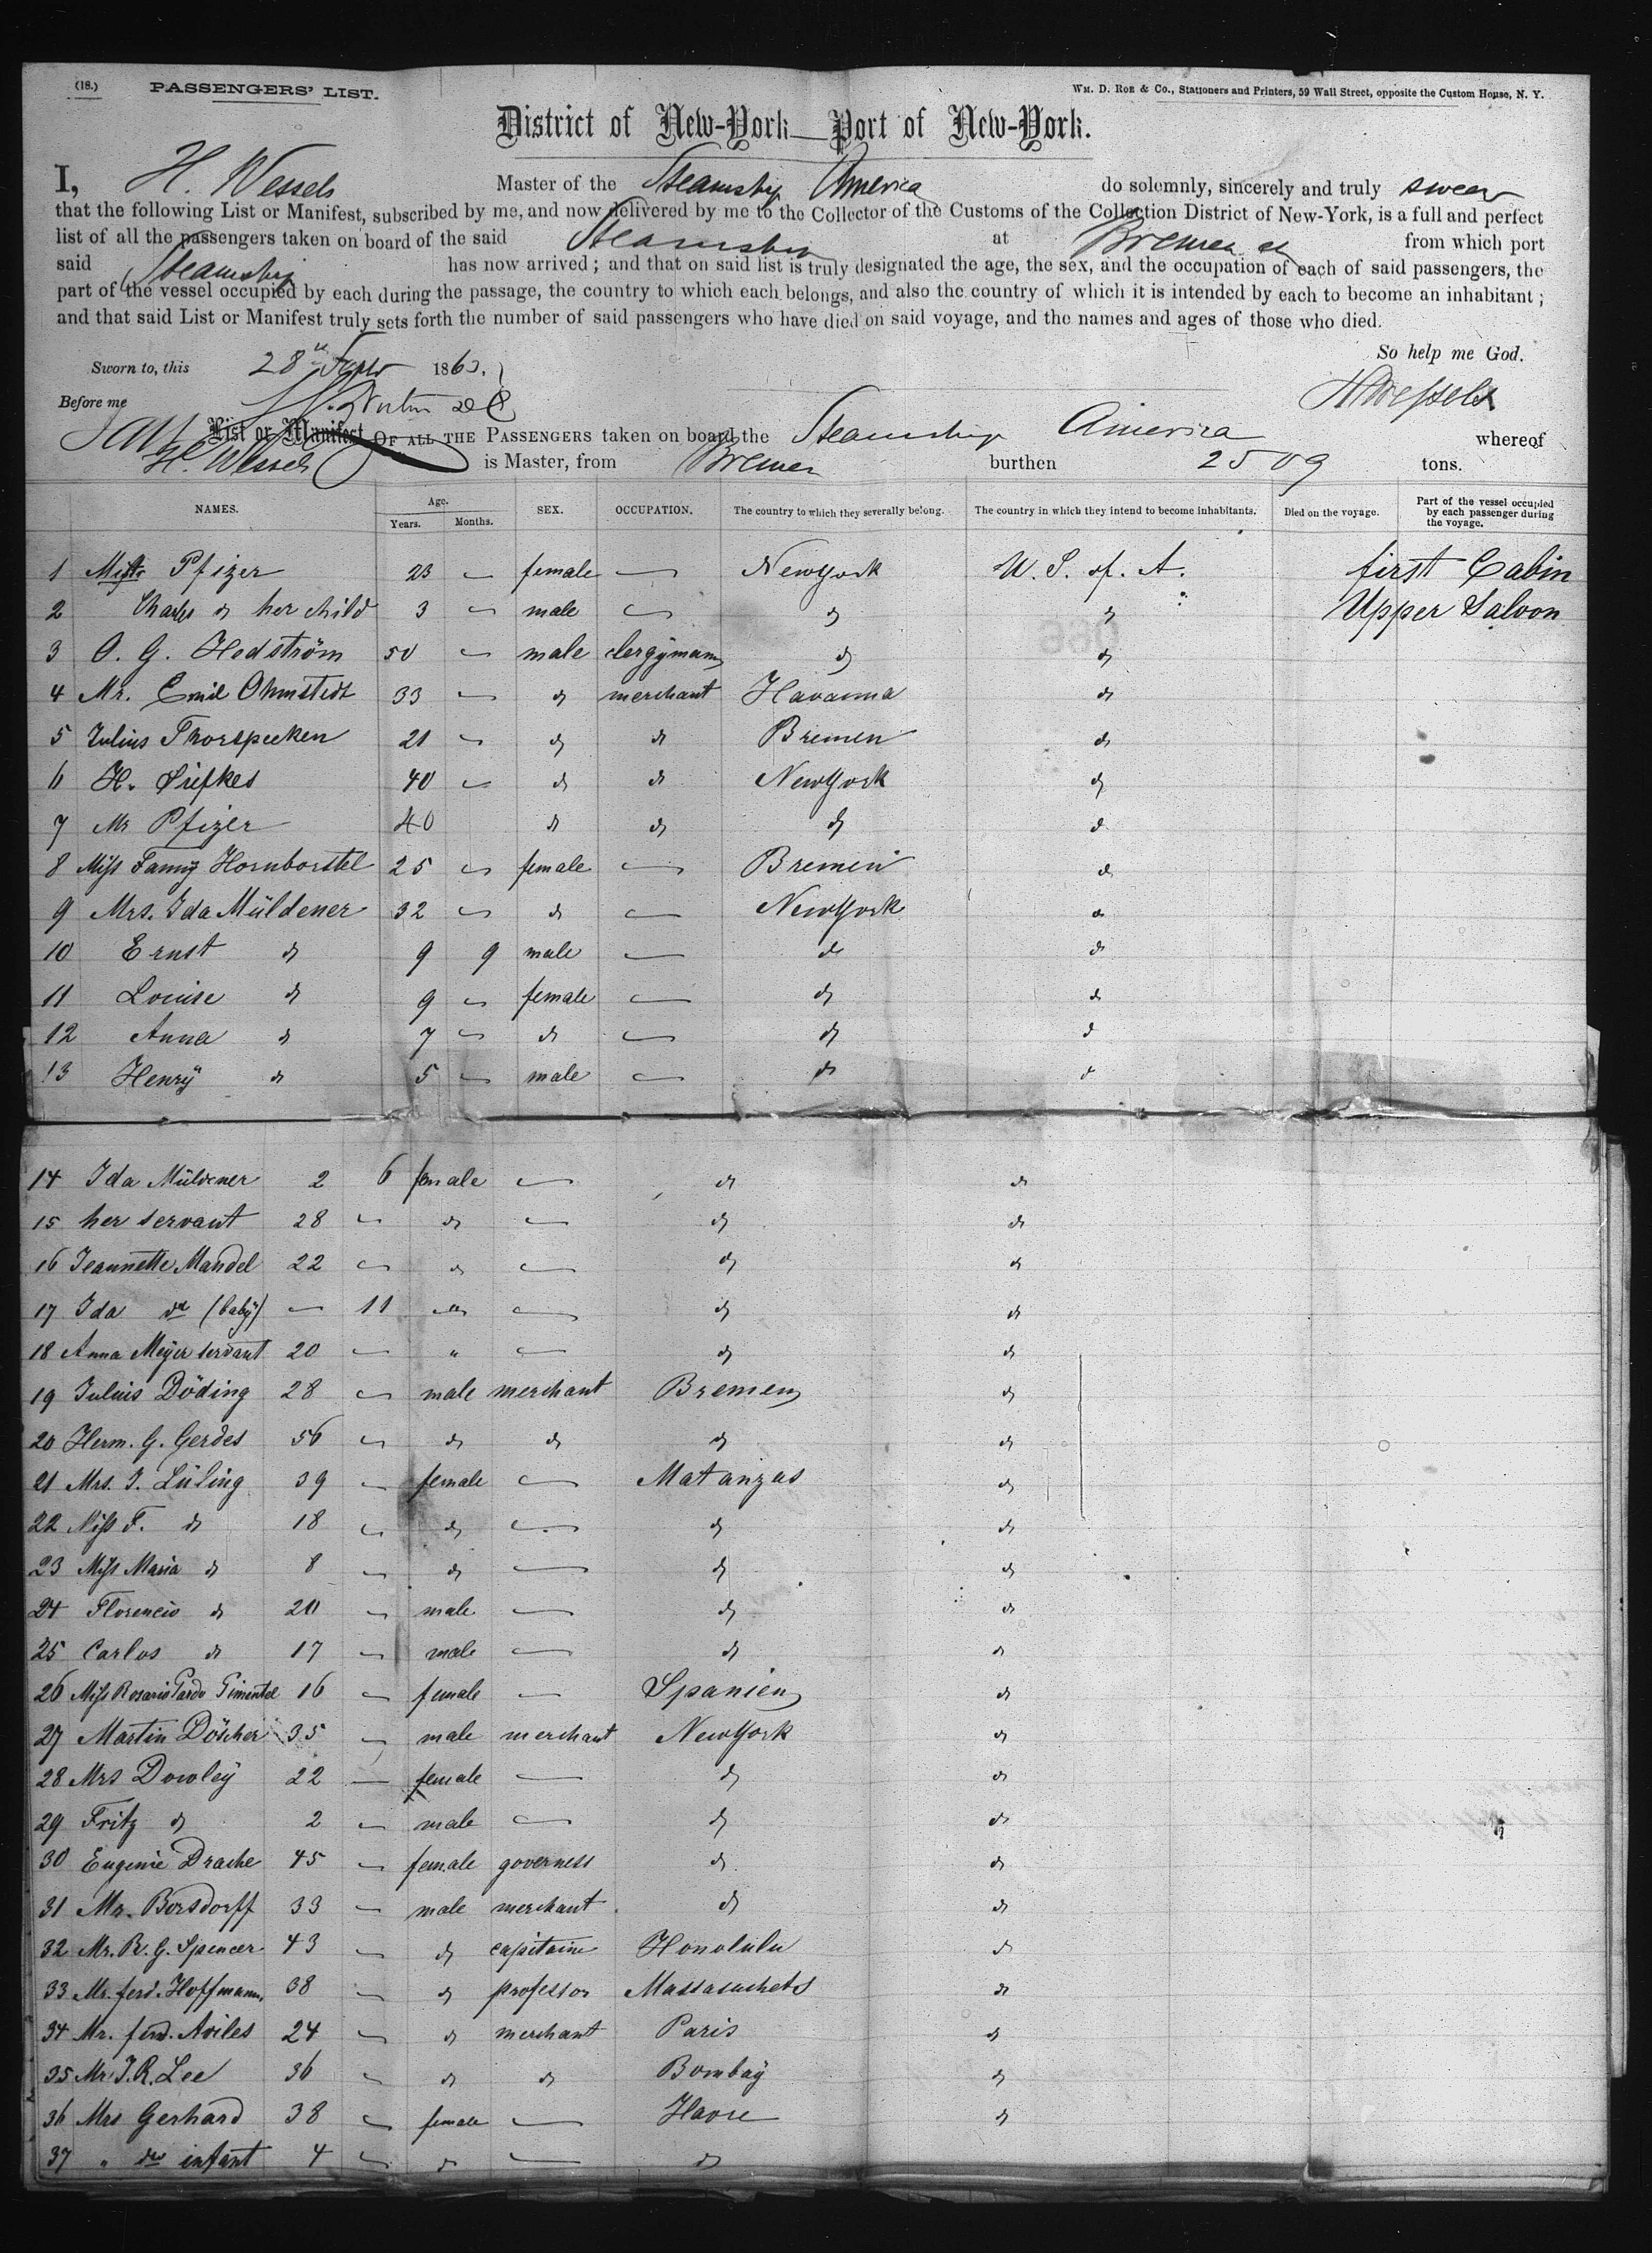 (18.) PASSENGERS' LIST. Wm. D. Roe & Co., Stationers and Printers, 59 Wall Street, opposite the Custom House, N. Y.
District of New-York—Port of New-York.
I, H. Wessels Master of the Steamship America do solemnly, sincerely and truly swear
that the following List or Manifest, subscribed by me, and now delivered by me to the Collector of the Customs of the Collection District of New-York, is a full and perfect
list of all the passengers taken on board of the said Steamship at Bremen from which port
said Steamship has now arrived; and that on said list is truly designated the age, the sex, and the occupation of each of said passengers, the
part of the vessel occupied by each during the passage, the country to which each belongs, and also the country of which it is intended by each to become an inhabitant;
and that said List or Manifest truly sets forth the number of said passengers who have died on said voyage, and the names and ages of those who died.
So help me God.
Sworn to, this 28th 186
HWessels
Before me
List or Manifest OF ALL THE PASSENGERS taken on board the Steamship America whereof
H. Wessels is Master, from Bremen burthen 2509 tons.
NAMES. Age. Years. Months. SEX. OCCUPATION. The country to which they severally belong. The country in which they intend to become inhabitants. Died on the voyage. Part of the vessel occupied by each passenger during the voyage.
1 Pfizer 23 — female — NewYork U. S. of. A. first Cabin
2 Charles & her child 3 — male — do do Upper Saloon
3 O. G. Hedström 50 — male clergyman do do
4 Mr. Emil Ohmstedt 33 — do merchant Havanna do
5 Julius Thorspecken 21 — do do Bremen do
6 H. Siefkes 40 — do do NewYork do
7 Mr Pfizer 40 do do do do
8 Miss Fanny Hornborstel 25 — female — Bremen do
9 Mrs. Ida Müldener 32 — do — NewYork do
10 Ernst do 9 9 male — do do
11 Louise do 9 — female — do do
12 Anna do 7 — do — do do
13 Henry do 5 — male — do do
14 Ida Müldener 2 6 female — do do
15 her servant 28 — do — do do
16 Jeannette Mandel 22 — do — do do
17 Ida do (baby) — 11 do — do do
18 Anna Meyer servant 20 — " — do do
19 Julius Döding 28 — male merchant Bremen do
20 Herm. G. Gerdes 56 — do do do do
21 Mrs. J. Lüling 39 — female — Matanzas do
22 Miss F. do 18 — do — do do
23 Miss Maria do 8 — do — do do
24 Florencio do 20 — male — do do
25 Carlos do 17 — male — do do
26 Miss Rosario Pardo Pimentel 16 — female — Spanien do
27 Martin Döscher 35 — male merchant NewYork do
28 Mrs Dowley 22 — female — do do
29 Fritz do 2 — male — do do
30 Eugenie Drache 45 — female governess do do
31 Mr. Borsdorff 33 — male merchant do do
32 Mr. R. G. Spencer 43 — do capitaine Honolulu do
33 Mr. ferd. Hoffmann 38 — do professor Massasuchets do
34 Mr. ferd. Aviles 24 — do merchant Paris do
35 Mr. J. R. Lee 36 — do do Bombay do
36 Mrs Gerhard 38 — female — Havre do
37 " do infant 4 — do — do